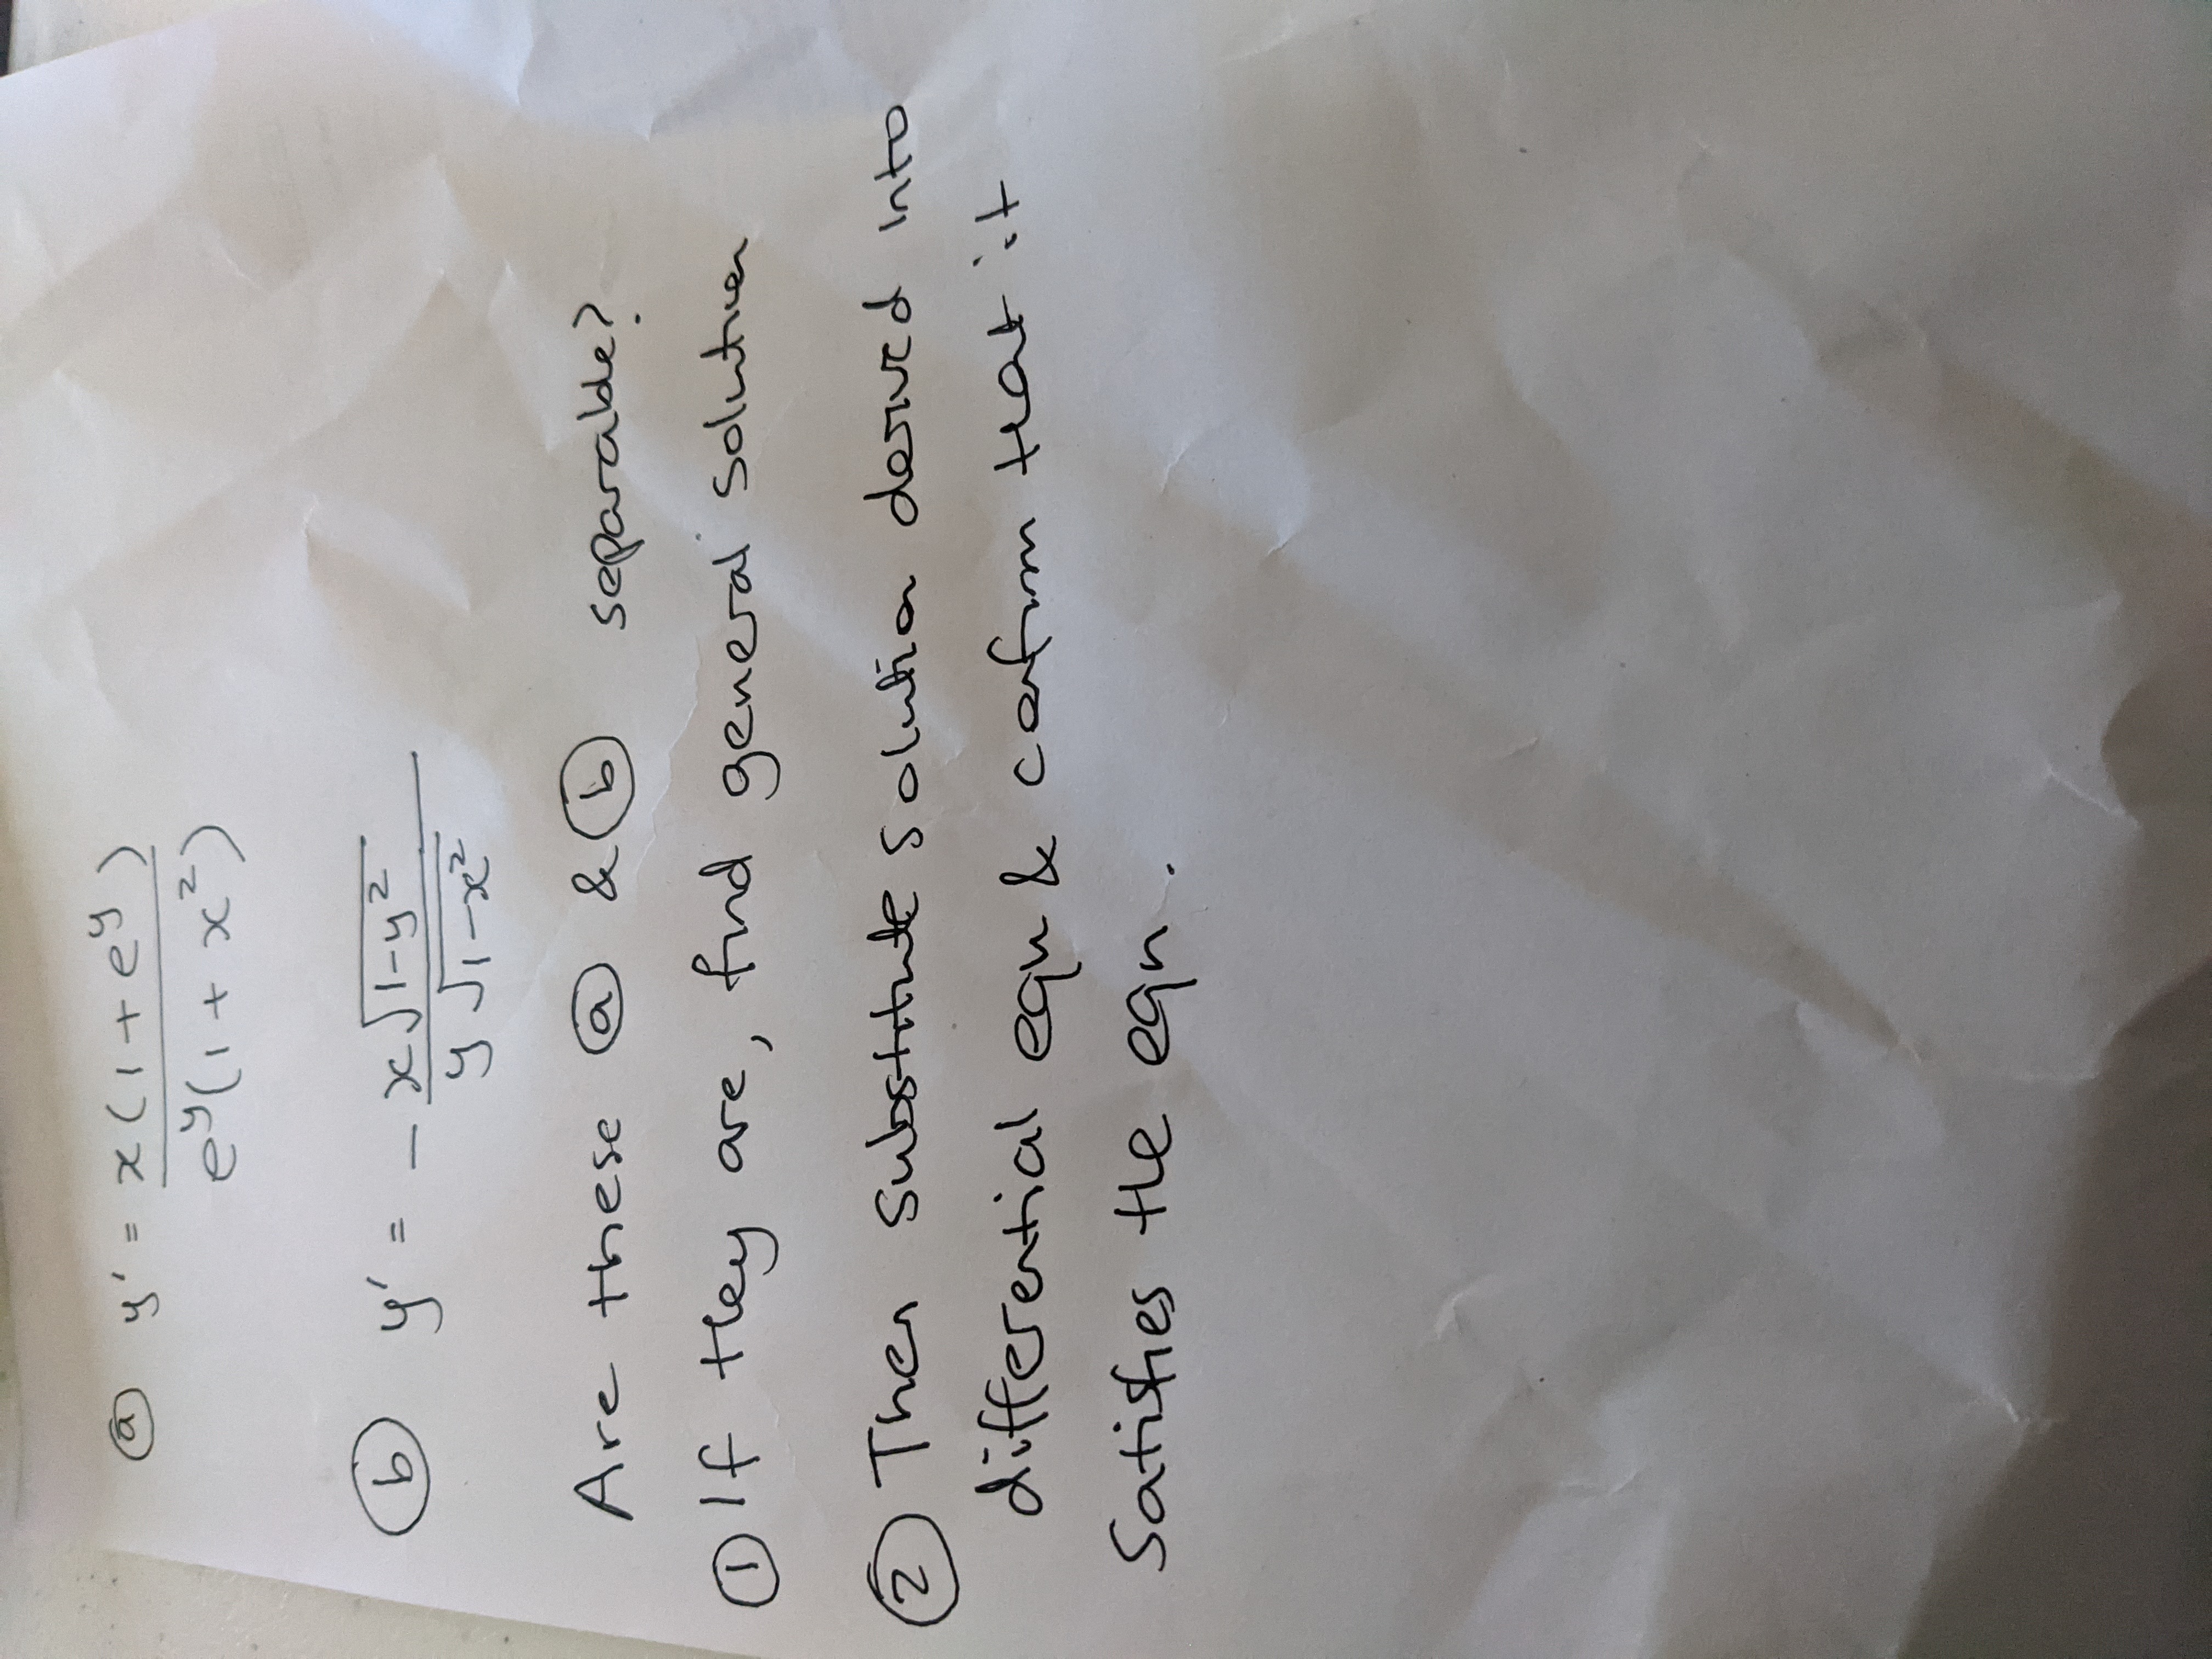 ⓐ y' = x(1 + e^y) / e^y(1 + x²)
ⓑ y' = - x√(1-y²) / y√(1-x²)
Are these ⓐ & ⓑ separable?
① If they are, find general solution
② Then substitute solution derived into
differential eqn & confirm that it
satisfies the eqn.